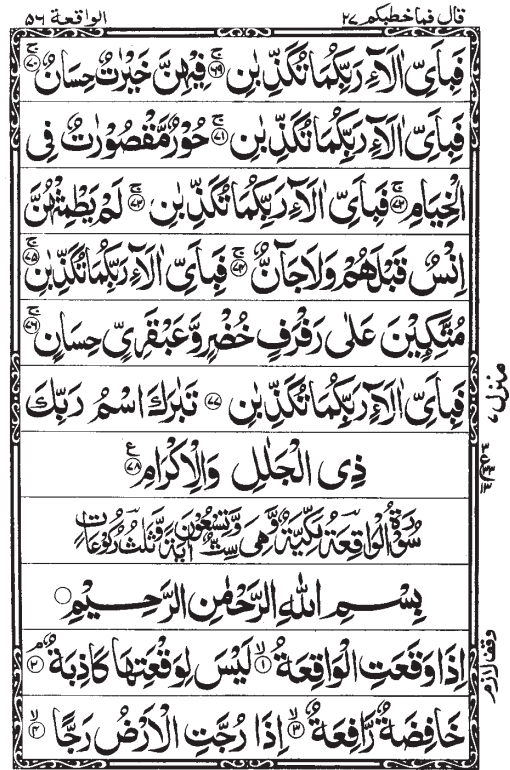 قال فما خطبكم ٢٧
الواقعة ٥٦
فَبِاَیِّ اٰلَآءِ رَبِّكُمَا تُكَذِّبٰنِ ۚ﴿٦٩﴾ فِیْهِنَّ خَیْرٰتٌ حِسَانٌ ۚ﴿٧٠﴾
فَبِاَیِّ اٰلَآءِ رَبِّكُمَا تُكَذِّبٰنِ ۚ﴿٧١﴾ حُوْرٌ مَّقْصُوْرٰتٌ فِی
الْخِیَامِ ۚ﴿٧٢﴾ فَبِاَیِّ اٰلَآءِ رَبِّكُمَا تُكَذِّبٰنِ ۚ﴿٧٣﴾ لَمْ یَطْمِثْهُنَّ
اِنْسٌ قَبْلَهُمْ وَلَا جَآنٌّ ۚ﴿٧٤﴾ فَبِاَیِّ اٰلَآءِ رَبِّكُمَا تُكَذِّبٰنِ ۚ﴿٧٥﴾
مُتَّكِـِٕیْنَ عَلٰی رَفْرَفٍ خُضْرٍ وَّعَبْقَرِیٍّ حِسَانٍ ۚ﴿٧٦﴾
فَبِاَیِّ اٰلَآءِ رَبِّكُمَا تُكَذِّبٰنِ ﴿٧٧﴾ تَبٰرَكَ اسْمُ رَبِّكَ
ذِی الْجَلٰلِ وَالْاِكْرَامِ ﴿٧٨﴾ ع
سُوْرَةُ الْوَاقِعَةِ مَكِّیَّةٌ وَّهِیَ سِتٌّ وَّتِسْعُوْنَ اٰیَةً وَّثَلٰثُ رُكُوْعَاتٍ
بِسْمِ اللهِ الرَّحْمٰنِ الرَّحِیْمِ
اِذَا وَقَعَتِ الْوَاقِعَةُ ۙ﴿١﴾ لَیْسَ لِوَقْعَتِهَا كَاذِبَةٌ ۘ﴿٢﴾
خَافِضَةٌ رَّافِعَةٌ ۙ﴿٣﴾ اِذَا رُجَّتِ الْاَرْضُ رَجًّا ۙ﴿٤﴾
منزل ٧
وقف لازم